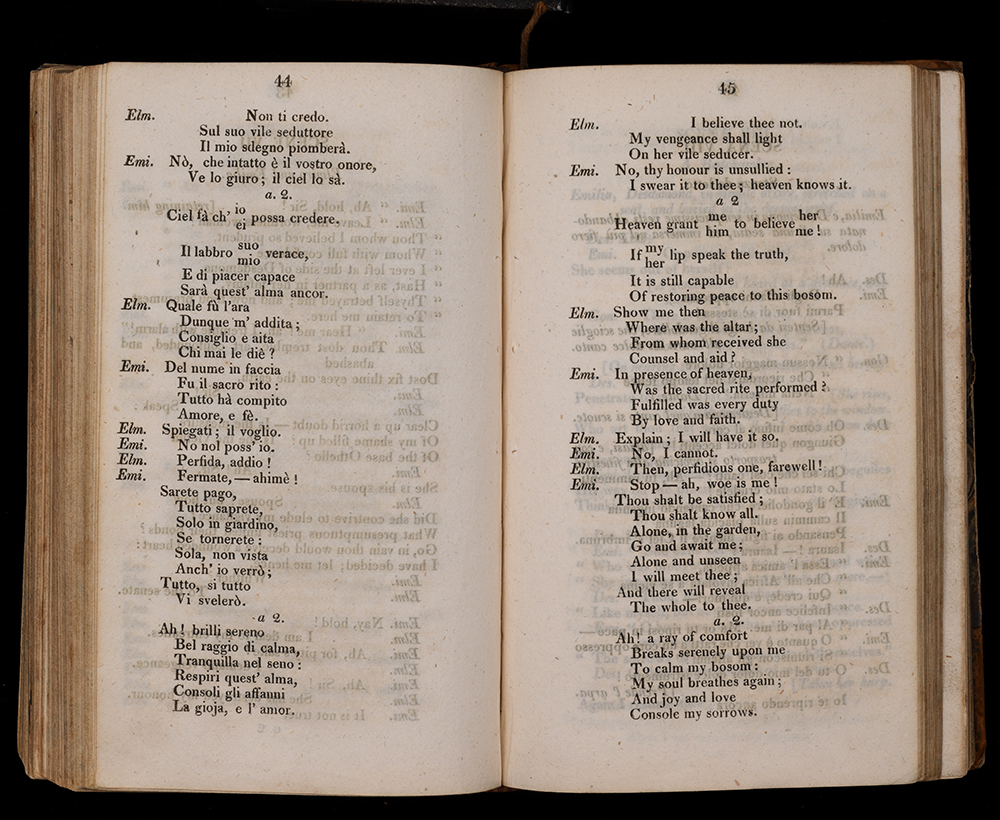 44
Elm. Non ti credo.
Sul suo vile seduttore
Il mio sdegno piomberà.
Emi. Nò, che intatto è il vostro onore,
Ve lo giuro; il ciel lo sà.
a. 2.
Ciel fà ch' io possa credere.
ei
Il labbro suo verace,
mio
E di piacer capace
Sarà quest' alma ancor.
Elm. Quale fù l'ara
Dunque m' addita;
Consiglio e aita
Chi mai le diè?
Emi. Del nume in faccia
Fu il sacro rito:
Tutto hà compito
Amore, e fè.
Elm. Spiegati; il voglio.
Emi. No nol poss' io.
Elm. Perfida, addio!
Emi. Fermate,—ahimè!
Sarete pago,
Tutto saprete,
Solo in giardino,
Se tornerete:
Sola, non vista
Anch' io verrò;
Tutto, si tutto
Vi svelerò.
a 2.
Ah! brilli sereno
Bel raggio di calma,
Tranquilla nel seno:
Respiri quest' alma,
Consoli gli affanni
La gioja, e l' amor.
45
Elm. I believe thee not.
My vengeance shall light
On her vile seducer.
Emi. No, thy honour is unsullied:
I swear it to thee; heaven knows it.
a 2
Heaven grant me to believe her
him me!
If my lip speak the truth,
her
It is still capable
Of restoring peace to this bosom.
Elm. Show me then
Where was the altar;
From whom received she
Counsel and aid?
Emi. In presence of heaven,
Was the sacred rite performed?
Fulfilled was every duty
By love and faith.
Elm. Explain; I will have it so.
Emi. No, I cannot.
Elm. Then, perfidious one, farewell!
Emi. Stop—ah, woe is me!
Thou shalt be satisfied;
Thou shalt know all.
Alone, in the garden,
Go and await me;
Alone and unseen
I will meet thee;
And there will reveal
The whole to thee.
a. 2.
Ah! a ray of comfort
Breaks serenely upon me
To calm my bosom:
My soul breathes again;
And joy and love
Console my sorrows.